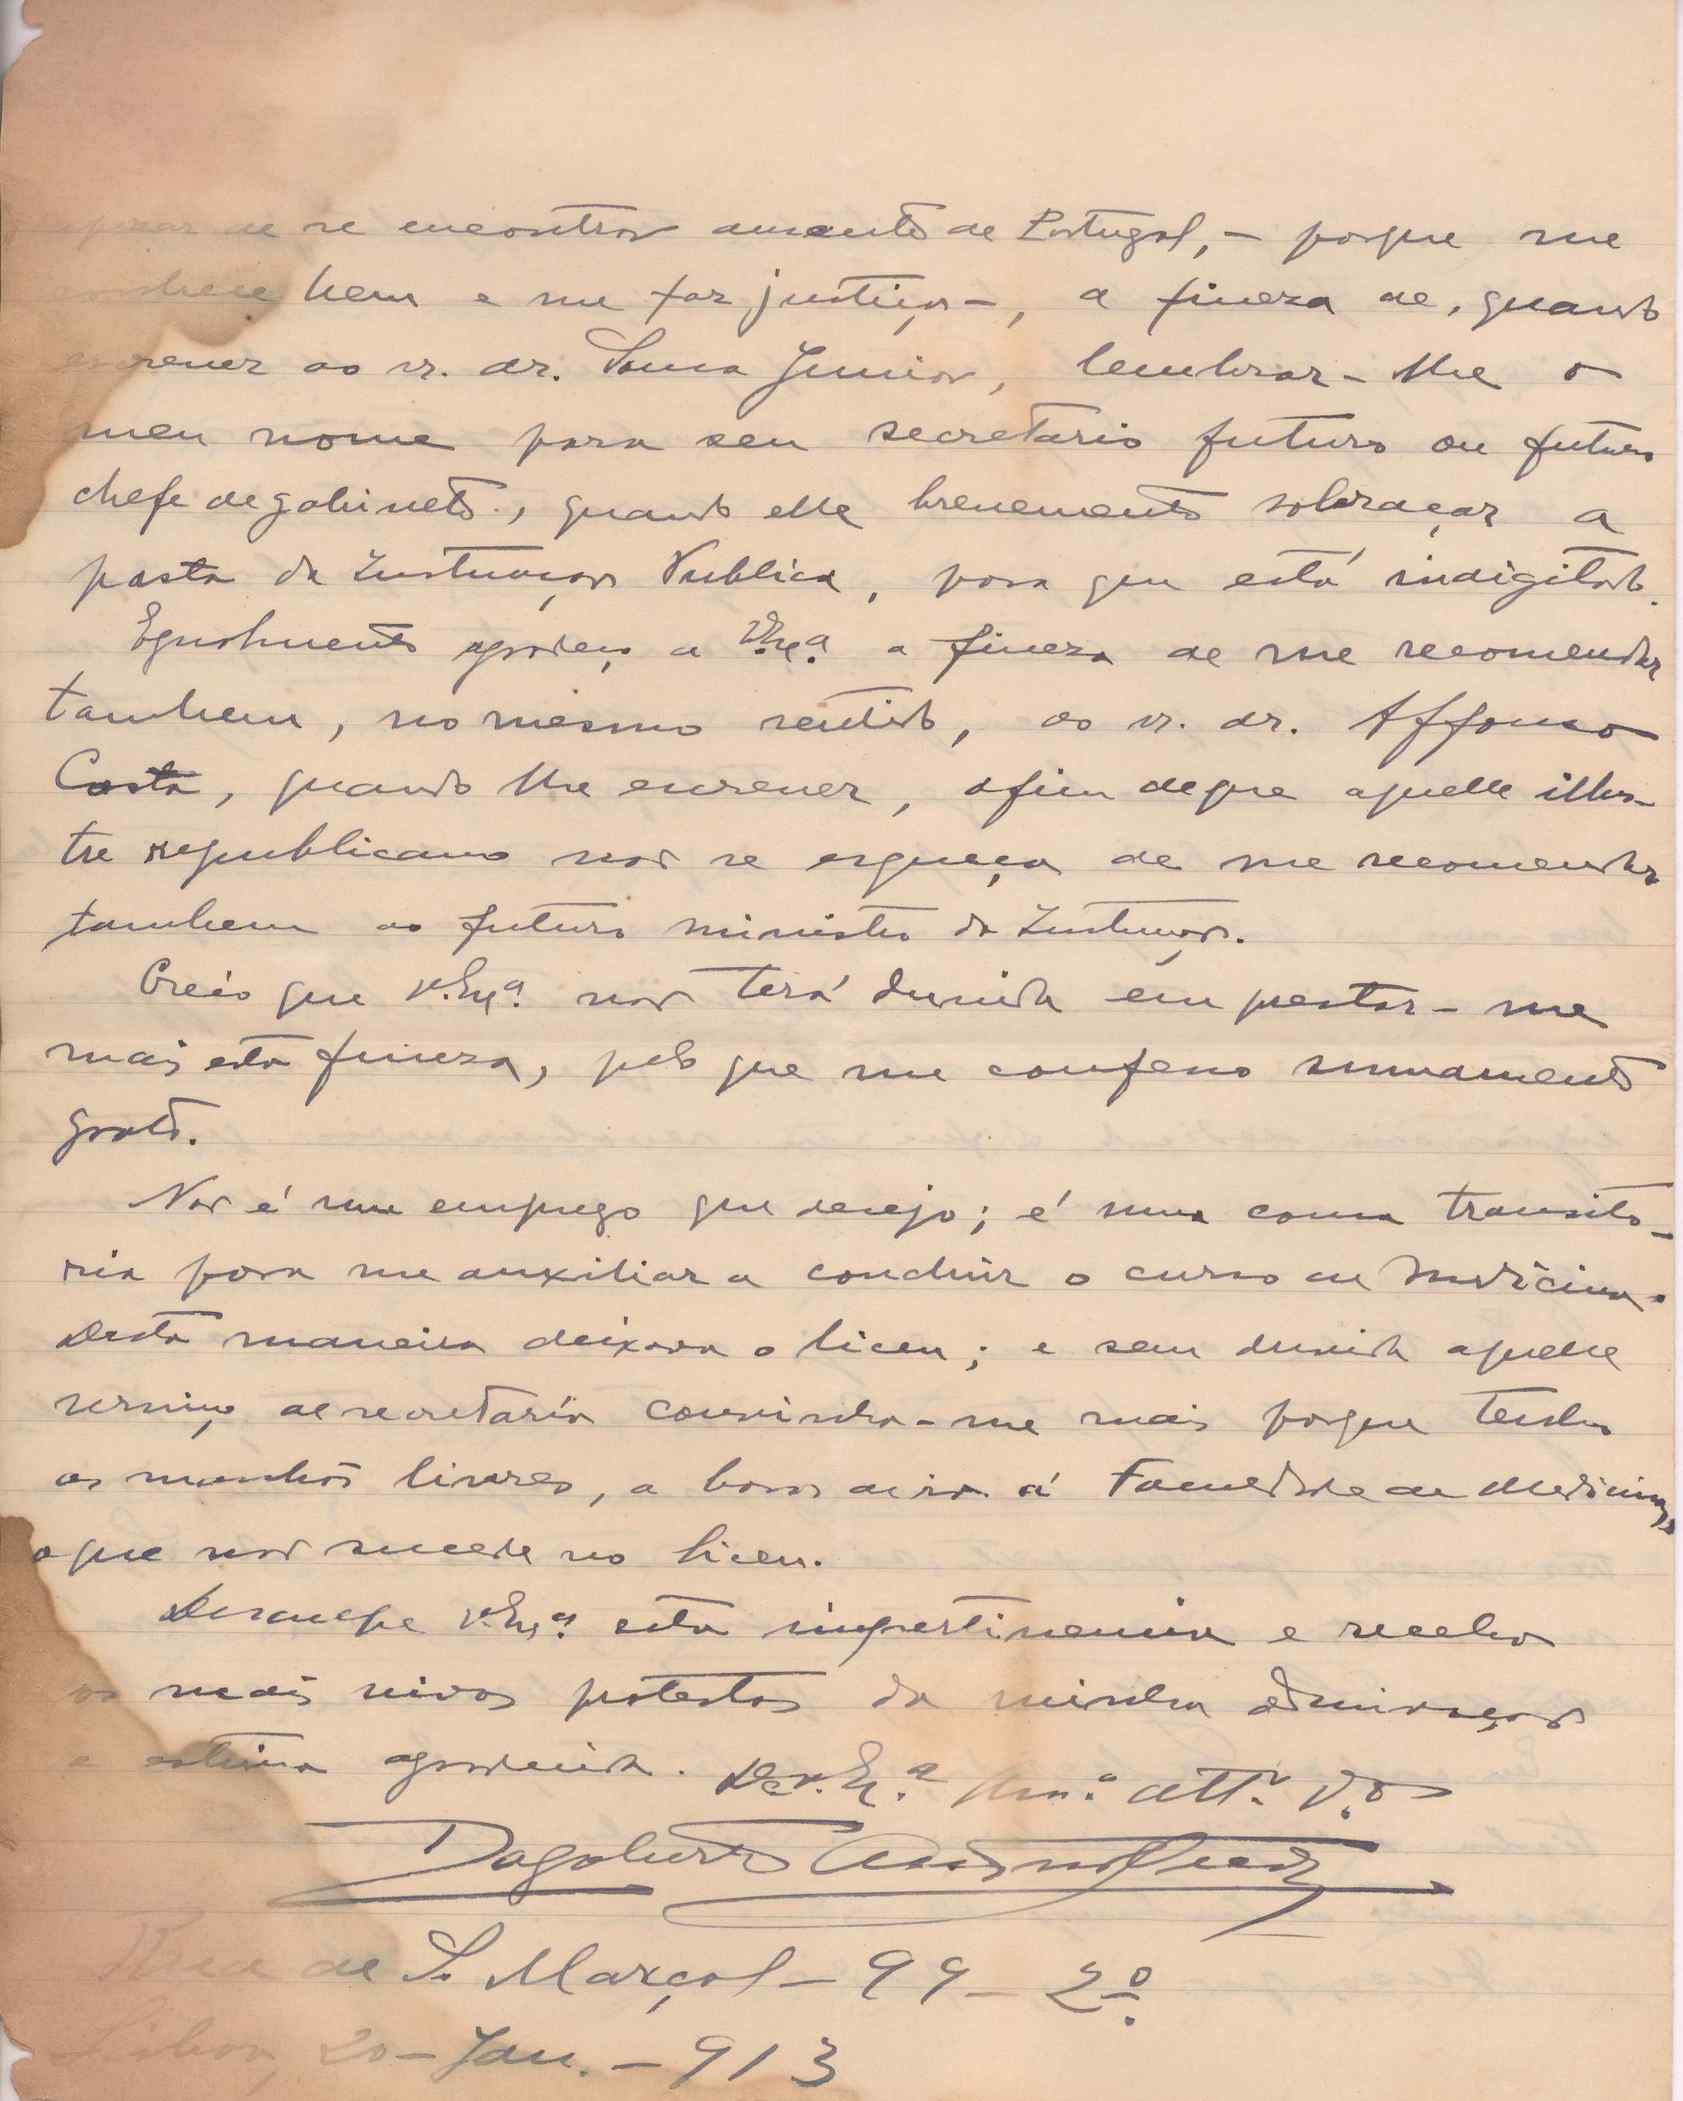 apezar de se encontrar ausente de Portugal, - porque me
conhece bem e me faz justiça -, a fineza de, quando
escrever ao sr. dr. Sousa Junior, lembrar-lhe o
meu nome para seu secretario futuro ou futuro
chefe de gabinete, quando elle brevemente sobraçar a
pasta da Instrucção Publica, para que está indigitado.
Egualmente agradeço a V. Ex.ª a fineza de me recomendar
tambem, no mesmo sentido, ao sr. dr. Affonso
Costa, quando lhe escrever, afim de que aquelle illus-
tre republicano não se esqueça de me recomendar
tambem ao futuro ministro da Instrucção.
Creio que v. Ex.ª não terá duvida em prestar-me
mais esta fineza, pelo que me confesso summamente
grato.
Não é um emprego que desejo; é uma cousa transito-
ria para me auxiliar a concluir o curso de Medicina.
Desta maneira deixava o liceu; e sem duvida aquelle
serviço de secretaria convinha-me mais porque tenho
as manhãs livres, a horas de ir á Faculdade de Medicina,
o que não succede no liceu.
Desculpe v. Ex.ª esta impertinencia e receba
os mais vivos protestos da minha admiração
e estima agradecida. De v. Ex.ª Am.º att.º v.or
Dagoberto Guedes
Rua de S. Marçal - 99 - 2º.
Lisboa, 20 - Jan. - 913